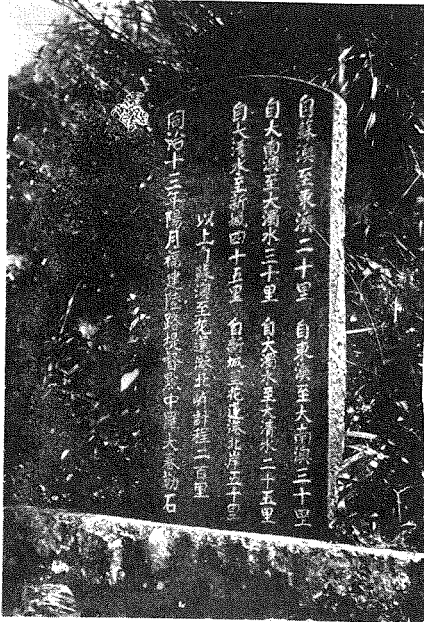 自蘇澳至東澳二十里 自東澳至大南澳三十里
自大南澳至大濁水三十里 自大濁水至大清水二十五里
自大清水至新城四十五里 自新城至花蓮港北岸五十里
以上自蘇澳至花蓮港北岸計程二百里
同治十三年陽月福建陸路提督黔中羅大春勒石